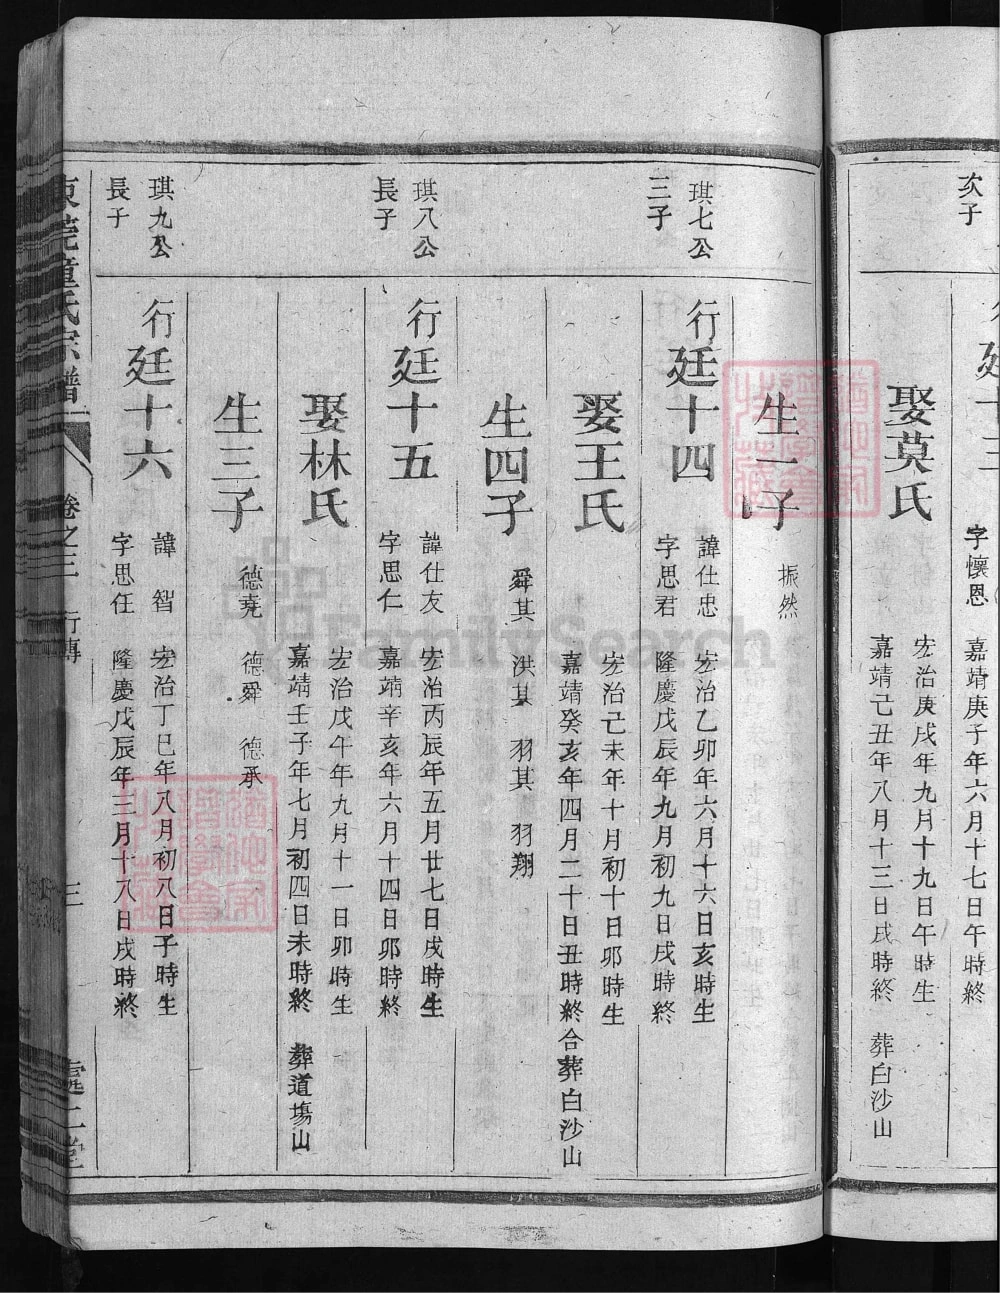 次子
字懷恩
嘉靖庚子年六月十七日午時終
娶莫氏
宏治庚戌年九月十九日午時生
嘉靖己丑年八月十三日戌時終 葬白沙山
生一子
振然
琪七公
三子
行廷十四
諱仕忠
字思君
宏治乙卯年六月十六日亥時生
隆慶戊辰年九月初九日戌時終
娶王氏
宏治己未年十月初十日卯時生
嘉靖癸亥年四月二十日丑時終合葬白沙山
生四子
舜其 洪其 羽其 羽翔
琪八公
長子
行廷十五
諱仕友
字思仁
宏治丙辰年五月廿七日戌時生
嘉靖辛亥年六月十四日卯時終
娶林氏
宏治戊午年九月十一日卯時生
嘉靖壬子年七月初四日未時終 葬道塲山
生三子
德堯 德舜 德承
琪九公
長子
行廷十六
諱智
字思任
宏治丁巳年八月初八日子時生
隆慶戊辰年三月十八日戌時終
卷之三 行傳
三
FamilySearch